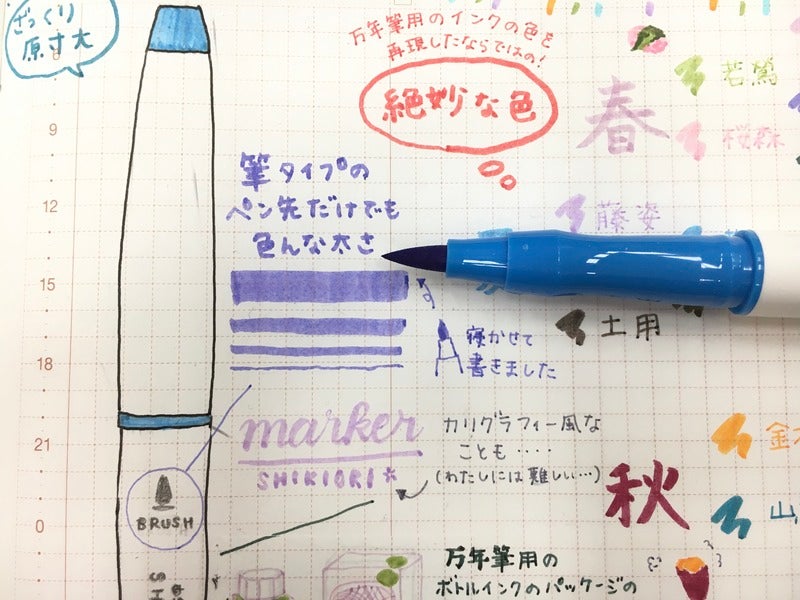 ざっくり
原寸大
万年筆用のインクの色を
再現したならではの!
絶妙な色
春
若鶯
桜森
藤姿
土用
筆タイプの
ペン先だけでも
色んな太さ
寝かせて
書きました
9
12
15
18
21
0
marker
SHIKIORI*
カリグラフィー風な
ことも・・・・
(わたしには難しい…)
BRUSH
秋
万年筆用の
ボトルインクのパッケージの